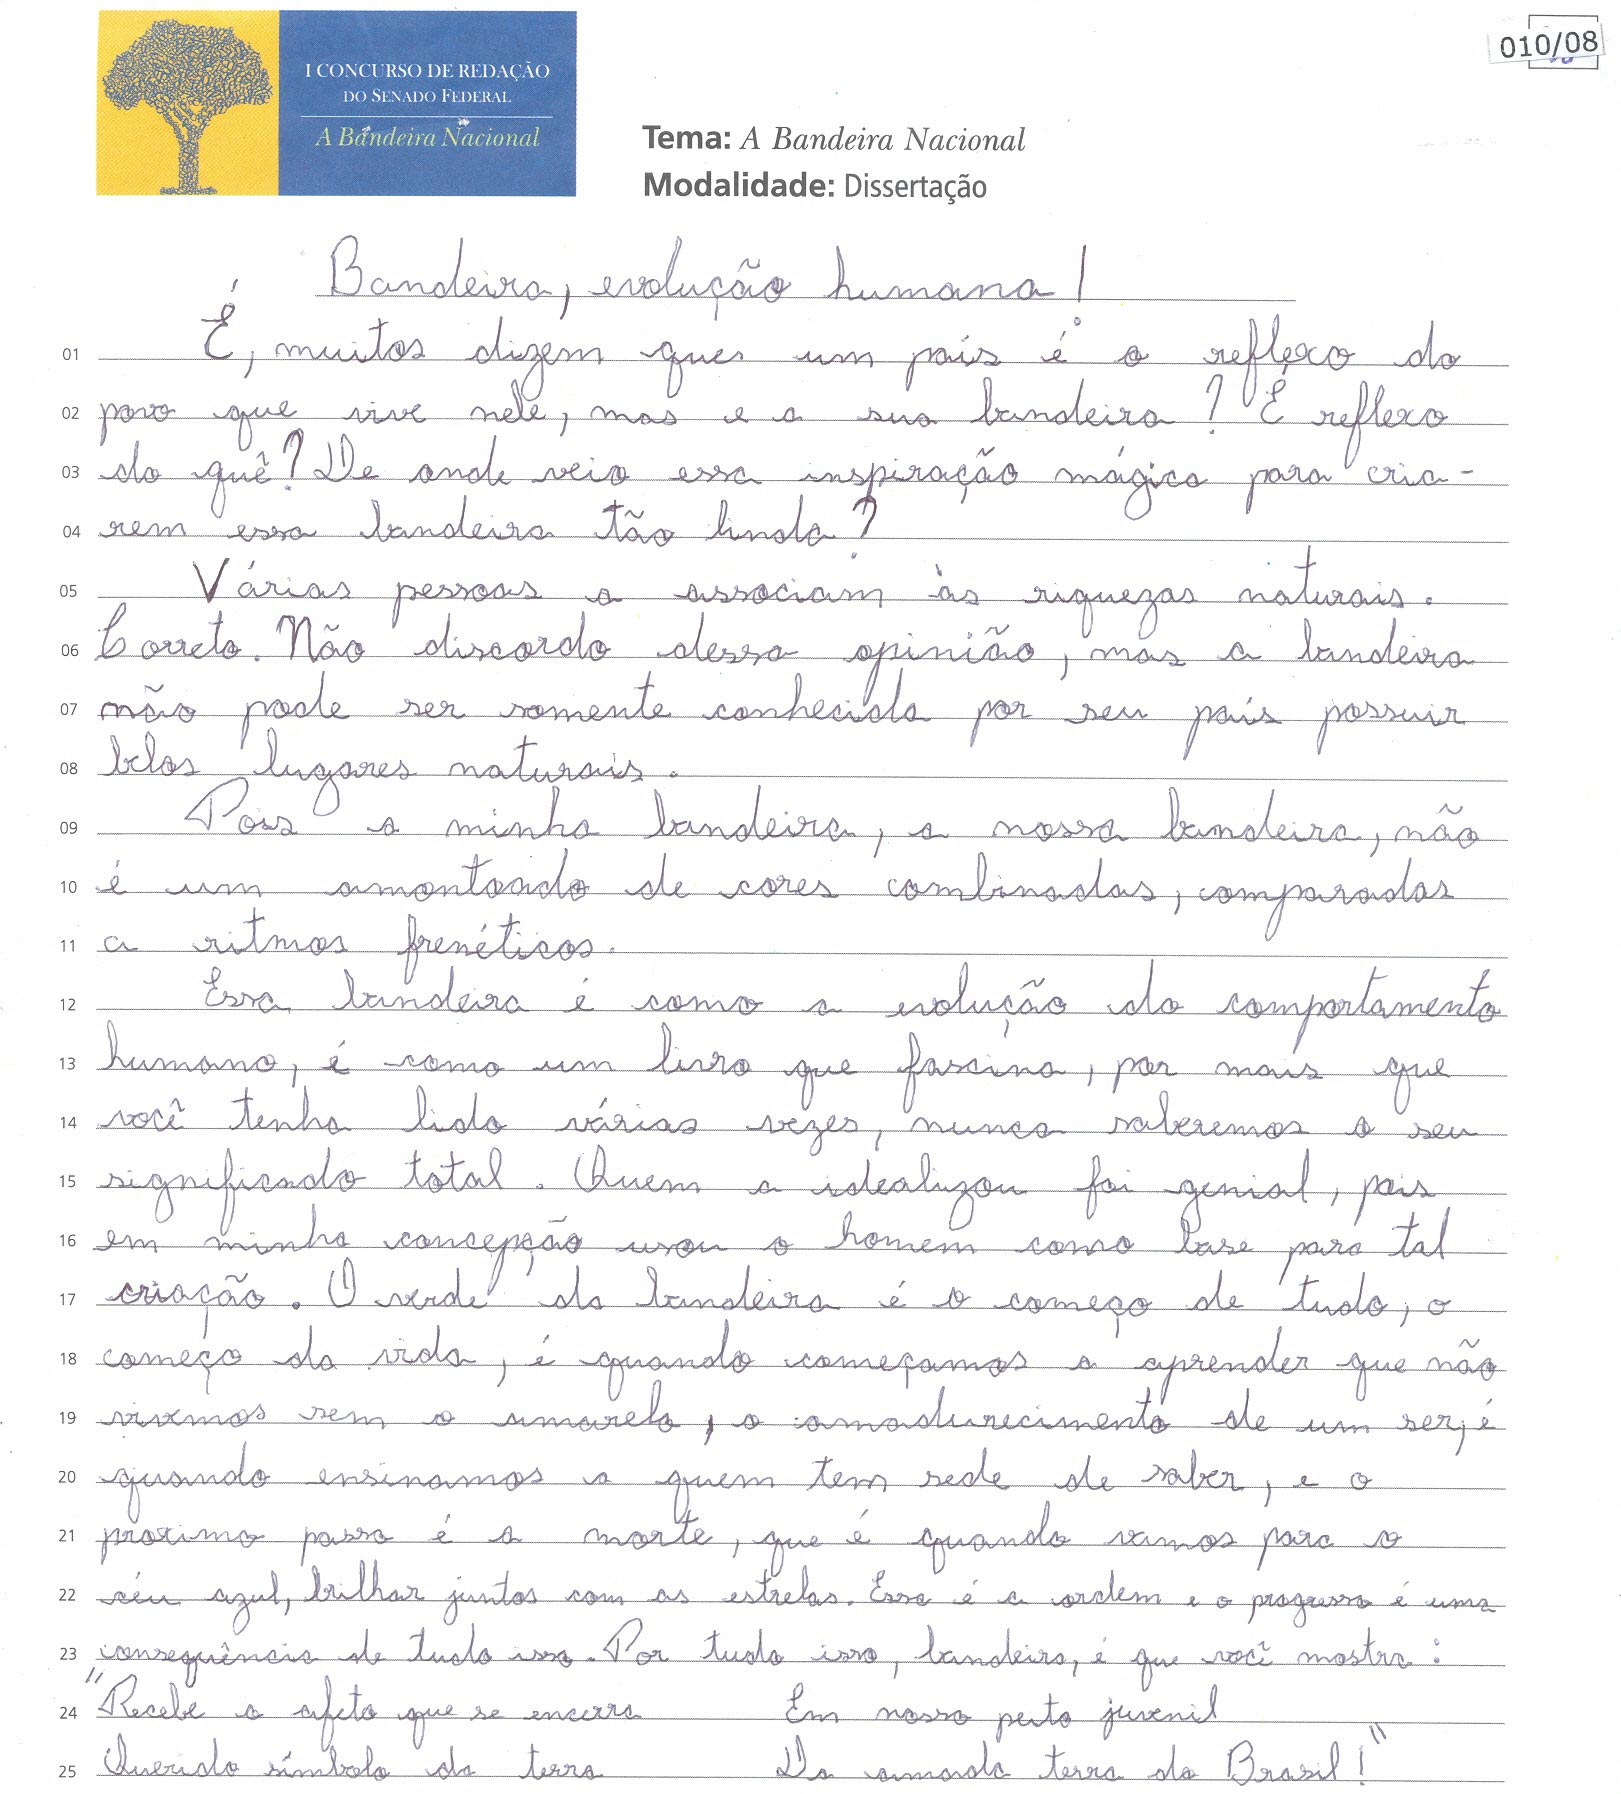 010/08
I CONCURSO DE REDAÇÃO
DO SENADO FEDERAL
A Bandeira Nacional
Tema: A Bandeira Nacional
Modalidade: Dissertação
Bandeira, evolução humana!
01 É, muitos dizem que um país é o reflexo do
02 povo que vive nele, mas e a sua bandeira? É reflexo
03 do quê? De onde veio essa inspiração mágica para cria-
04 rem essa bandeira tão linda?
05 Várias pessoas a associam às riquezas naturais.
06 Correto. Não discordo dessa opinião, mas a bandeira
07 não pode ser somente conhecida por seu país possuir
08 belos lugares naturais.
09 Pois a minha bandeira, a nossa bandeira, não
10 é um amontoado de cores combinadas, comparadas
11 a ritmos frenéticos.
12 Essa bandeira é como a evolução do comportamento
13 humano, é como um livro que fascina, por mais que
14 você tenha lido várias vezes, nunca saberemos o seu
15 significado total. Quem a idealizou foi genial, pois
16 em minha concepção usou o homem como base para tal
17 criação. O verde da bandeira é o começo de tudo, o
18 começo da vida, é quando começamos a aprender que não
19 vivemos sem o amarelo, o amadurecimento de um ser, é
20 quando ensinamos a quem tem sede de saber, e o
21 proximo passo é a morte, que é quando vamos para o
22 céu azul, brilhar juntos com as estrelas. Essa é a ordem e o progresso é uma
23 consequência de tudo isso. Por tudo isso, bandeira, é que você mostra:
24 "Recebe o afeto que se encerra Em nosso peito juvenil
25 Querido símbolo da terra Da amada terra do Brasil!"